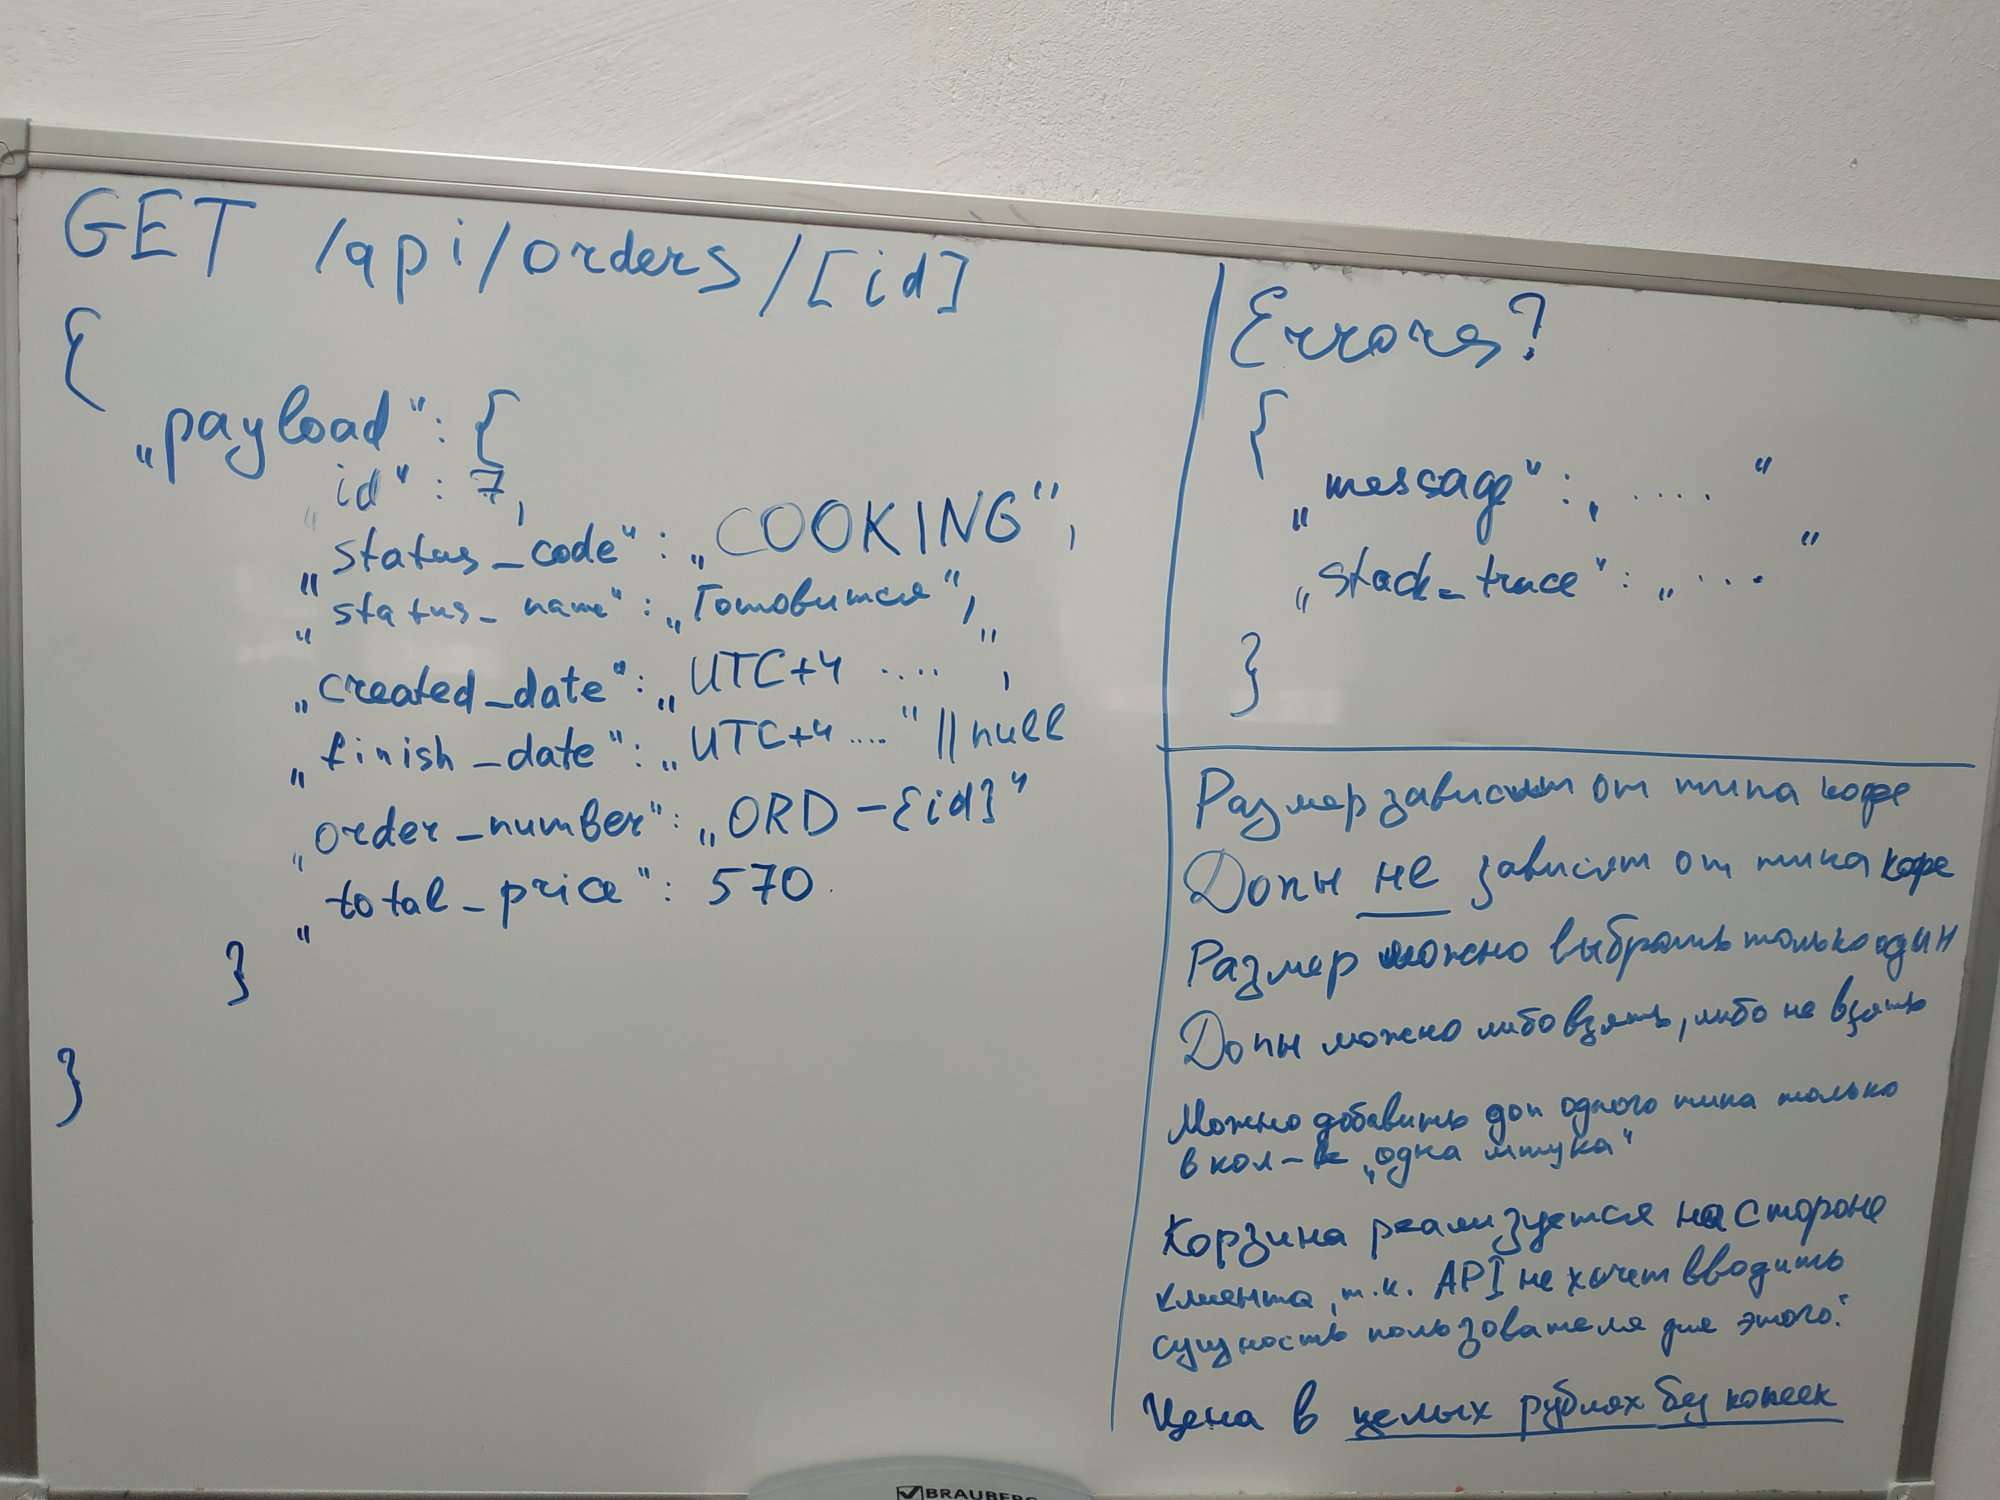 GET /api/orders/[id]
{
„payload“: {
„id“: 7,
„status_code“: „COOKING“,
„status_name“: „Готовится“,
„created_date“: „UTC+4 ....“,
„finish_date“: „UTC+4 ....“ || null
„order_number“: „ORD-{id}“
„total_price“: 570
}
}
Errors?
{
„message“: „ ....“
„stack_trace“: „ ...“
}
Размер зависит от типа кофе
Допы не зависят от типа кофе
Размер можно выбрать только один
Допы можно либо взять, либо не взять
Можно добавить доп одного типа только
в кол-ве „одна штука“
Корзина реализуется на стороне
клиента, т.к. API не хочет вводить
сущность пользователя для этого.
Цена в целых рублях без копеек
BRAUBERG